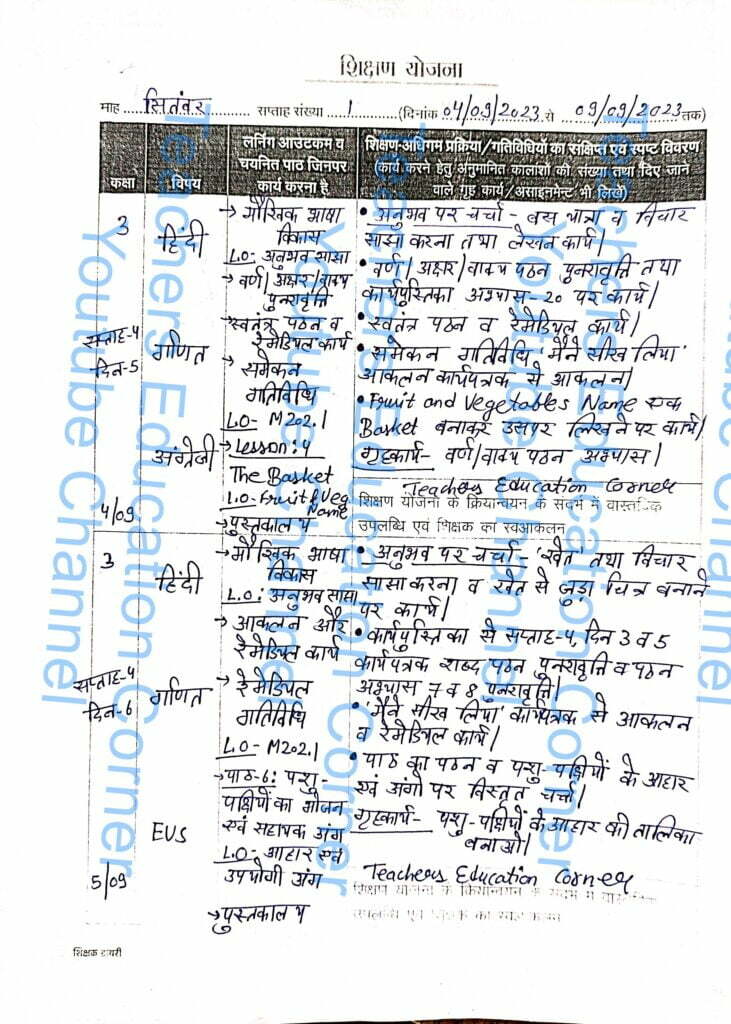 शिक्षण योजना
माह सितंबर सप्ताह संख्या 1 (दिनांक 04/09/2023 से 09/09/2023 तक)
कक्षा
विषय
लर्निंग आउटकम व
चयनित पाठ जिनपर
कार्य करना है
शिक्षण-अधिगम प्रक्रिया/गतिविधियों का संक्षिप्त एवं स्पष्ट विवरण
(कार्य करने हेतु अनुमानित कालांशों की संख्या तथा दिए जाने
वाले गृह कार्य/असाइनमेंट भी लिखें)
3
सप्ताह-4
दिन-5
4/09
हिंदी
गणित
अंग्रेजी
→ मौखिक भाषा
विकास
L.O- अनुभव साझा
→ वर्ण/अक्षर/वाक्य
पुनरावृत्ति
→ स्वतंत्र पठन व
रेमेडियल कार्य
→ समेकन
गतिविधि
L.O- M202.1
→ Lesson: 4
The Basket
L.O- Fruit & Veg
Name
→ पुस्तकालय
• अनुभव पर चर्चा - बस यात्रा व विचार
साझा करना तथा लेखन कार्य|
• वर्ण/अक्षर/वाक्य पठन पुनरावृत्ति तथा
कार्यपुस्तिका अभ्यास-20 पर कार्य|
• स्वतंत्र पठन व रेमेडियल कार्य|
• समेकन गतिविधि 'मैंने सीख लिया'
आकलन कार्यपत्रक से आकलन|
• Fruit and Vegetables Name एक
Basket बनाकर उसपर लिखने पर कार्य|
गृहकार्य- वर्ण/वाक्य पठन अभ्यास|
Teachers Education Corner
शिक्षण योजना के क्रियान्वयन के संदर्भ में वास्तविक
उपलब्धि एवं शिक्षक का स्वआकलन
3
सप्ताह-4
दिन-6
5/09
हिंदी
गणित
EVS
→ मौखिक भाषा
विकास
L.O: अनुभव साझा
→ आकलन और
रेमेडियल कार्य
→ रेमेडियल
गतिविधि
L.O- M202.1
→ पाठ-6: पशु-
पक्षियों का भोजन
एवं सहायक अंग
L.O- आहार एवं
उपयोगी अंग
→ पुस्तकालय
• अनुभव पर चर्चा - 'खेत' तथा विचार
साझा करना व खेत से जुड़ा चित्र बनाने
पर कार्य|
• कार्यपुस्तिका से सप्ताह-4, दिन 3 व 5
कार्यपत्रक शब्द पठन पुनरावृत्ति व पठन
अभ्यास 7 व 8 पुनरावृत्ति|
• 'मैंने सीख लिया' कार्यपत्रक से आकलन
व रेमेडियल कार्य|
• पाठ का पठन व पशु-पक्षियों के आहार
एवं अंगों पर विस्तृत चर्चा|
गृहकार्य- पशु-पक्षियों के आहार की तालिका
बनाओ|
Teachers Education Corner
शिक्षण योजना के क्रियान्वयन के संदर्भ में वास्तविक
उपलब्धि एवं शिक्षक का स्वआकलन
शिक्षक डायरी
Teachers Education Corner
Youtube Channel
Teachers Education Corner
Youtube Channel
Teachers Education Corner
Youtube Channel